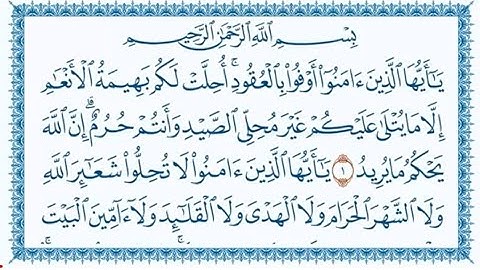 بِسْمِ اللَّهِ الرَّحْمَٰنِ الرَّحِيمِ
يَٰٓأَيُّهَا الَّذِينَ ءَامَنُوٓا۟ أَوْفُوا۟ بِالْعُقُودِ ۚ أُحِلَّتْ لَكُم بَهِيمَةُ الْأَنْعَٰمِ
إِلَّا مَا يُتْلَىٰ عَلَيْكُمْ غَيْرَ مُحِلِّي الصَّيْدِ وَأَنتُمْ حُرُمٌ ۗ إِنَّ اللَّهَ
يَحْكُمُ مَا يُرِيدُ ١ يَٰٓأَيُّهَا الَّذِينَ ءَامَنُوا۟ لَا تُحِلُّوا۟ شَعَٰٓئِرَ اللَّهِ
وَلَا الشَّهْرَ الْحَرَامَ وَلَا الْهَدْىَ وَلَا الْقَلَٰٓئِدَ وَلَآ ءَآمِّينَ الْبَيْتَ